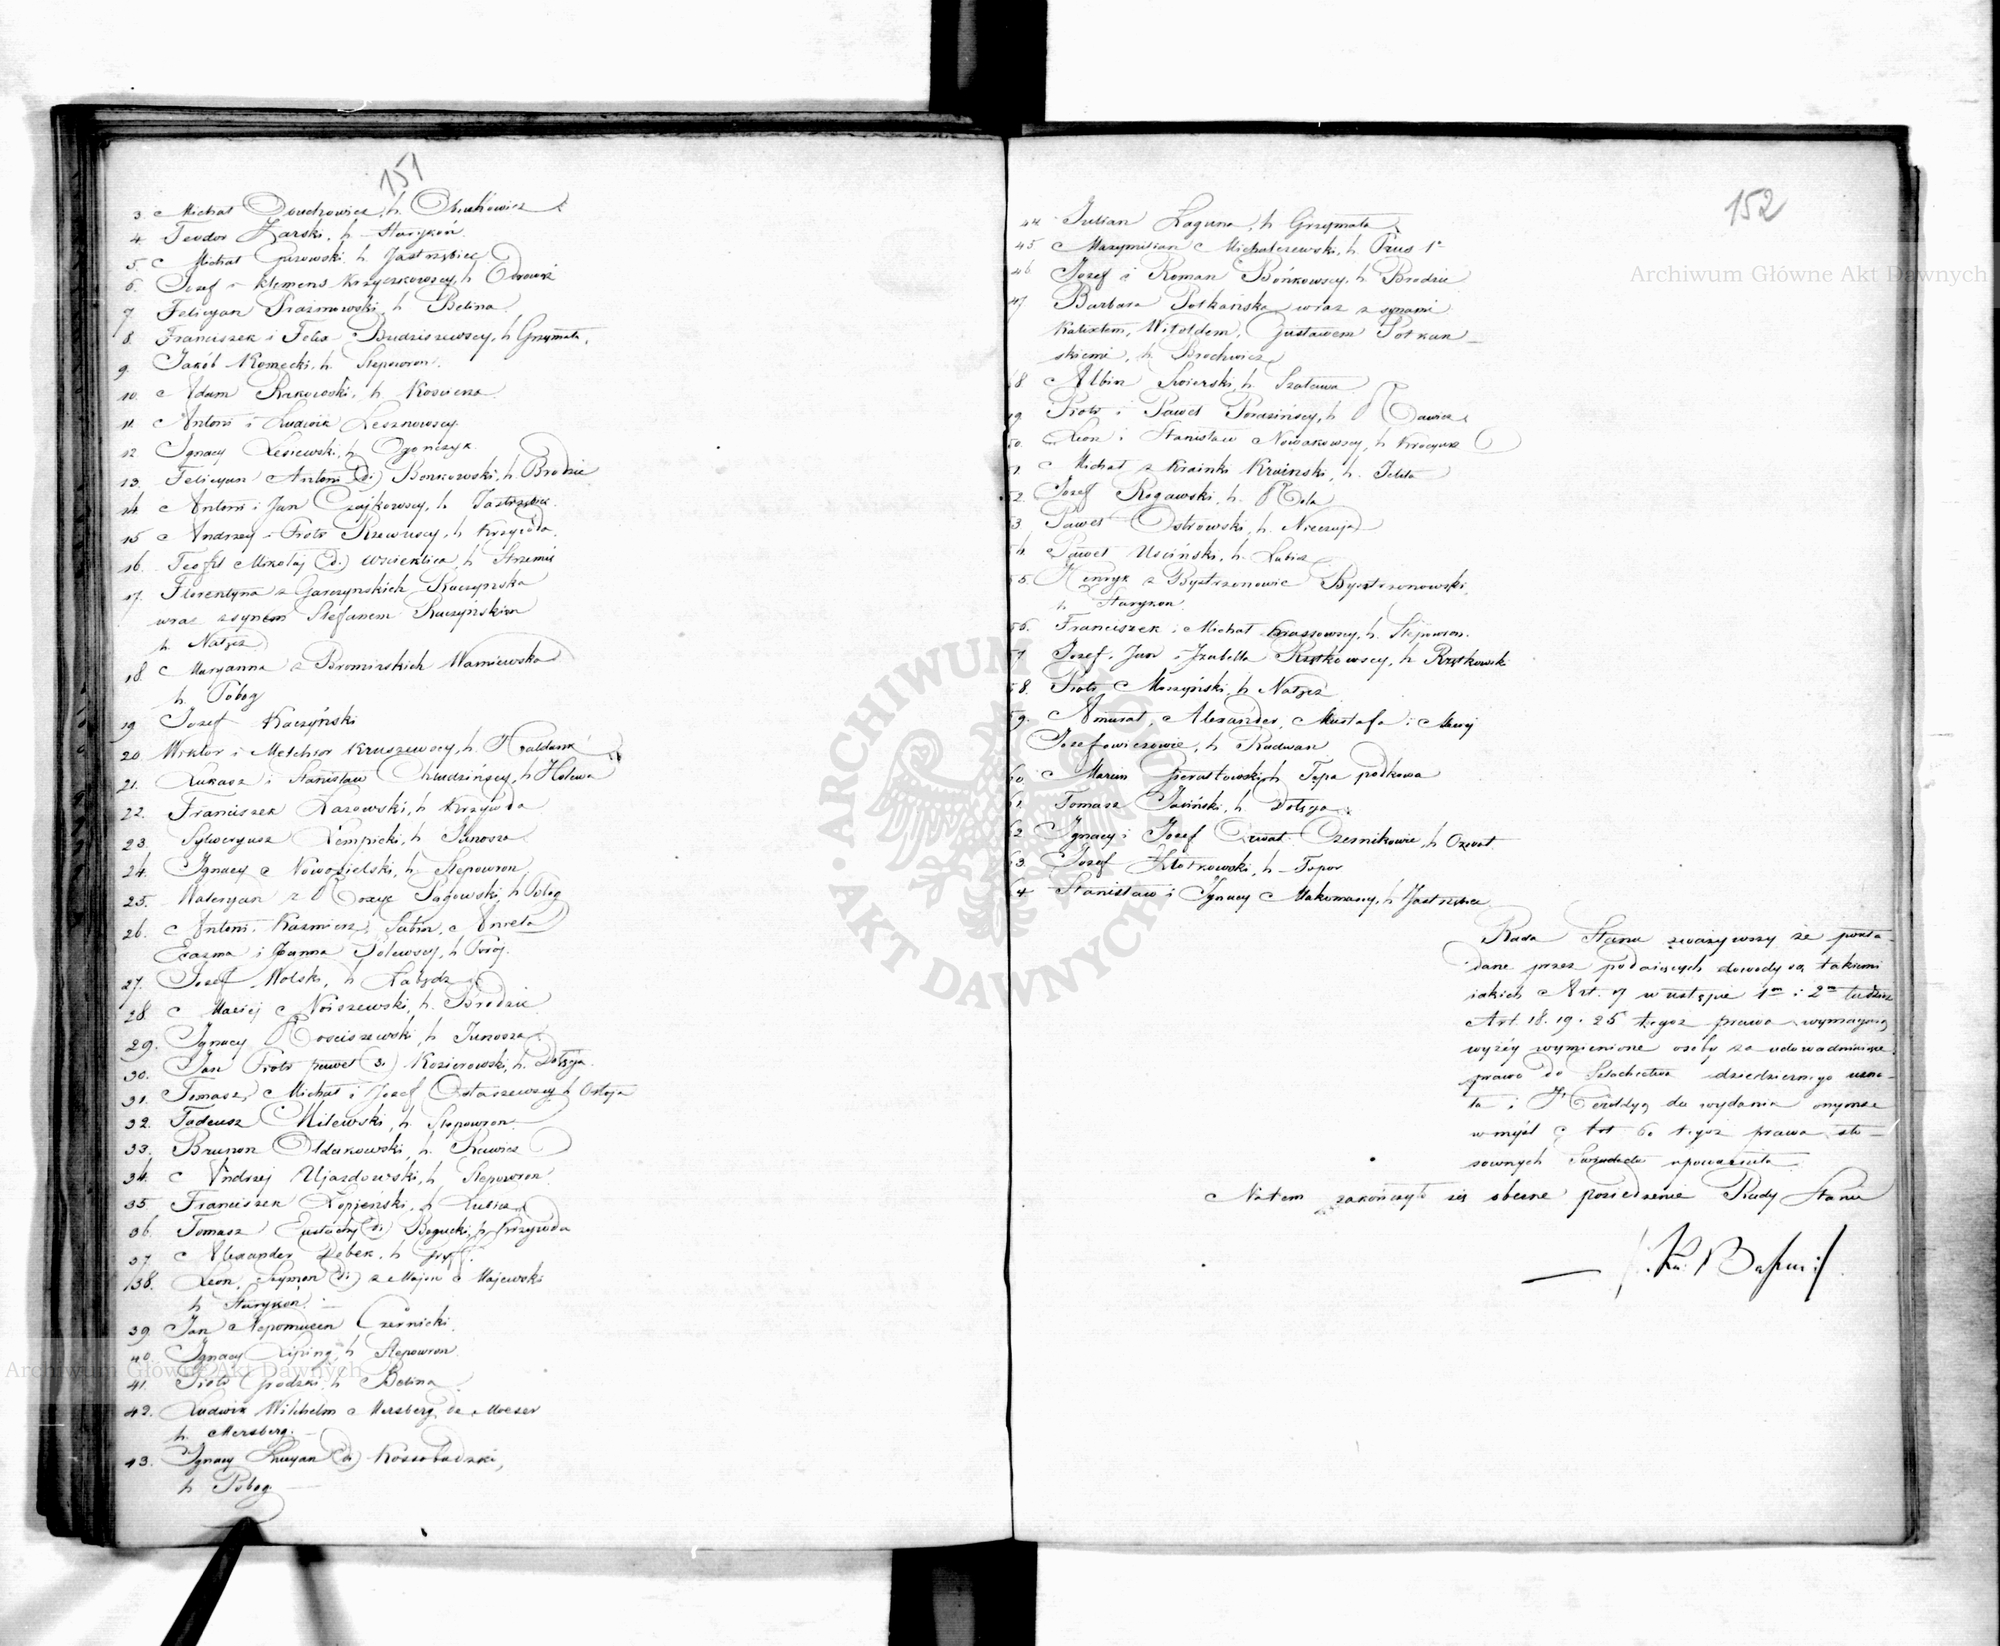 151
3. Michał Obuchowicz, h. Obuchowicz
4. Teodor Żarski, h. Starykon
5. Michał Gurowski, h. Jastrzębiec
6. Jozef i Klemens Krzyczkowscy, h. Odrowąż
7. Felicyan Prażmowski, h. Belina
8. Franciszek i Felix Budziszewscy, h. Grzymała,
9. Jakób Komecki, h. Slepowron.
10. Adam Rakowski, h. Kosciesza
11. Antoni i Ludwik Lesznowscy
12 Ignacy Lesiewski, h. Ogończyk
13. Felicyan Antoni (2i.) Bonkowski, h. Brodzic
14. Antoni i Jan Czajkowscy, h. Jastrzębiec
15 Andrzej i Piotr Rzewuscy, h. Krzywda.
16. Teofil Mikołaj (2i.) Wscieklica, h. Strzemie
17. Florentyna z Garczynskich Raczynska
wraz z synem Stefanem Raczyńskim
h. Nałęcz
18. Maryanna z Bromirskich Waniewska
h. Pobog
19 Jozef Kaczyński
20. Wiktor i Melchior Kruszewscy, h.
21. Łukasz i Stanisław Chudzińscy, h. Holewa
22. Franciszek Łazowski, h. Krzywda
23. Sylweryusz Łempicki, h. Junosza
24. Ignacy Nowosielski, h. Slepowron
25. Waleryan z Rożyc Pągowski, h. Pobog
26. Antoni, Kazmierz, Sabin, Aniela
Erazma i Joanna Polewscy, h. Trój.
27. Jozef Wolski, h. Łabędz
28. Maciej Noiszewski, h. Brodzic
29. Ignacy Rościszewski, h. Junosza
30. Jan Piotr Paweł (3i.) Kozierowski, h. Dołęga.
31. Tomasz, Michał i Jozef Ostaszewscy, h. Ostoja
32. Tadeusz Milewski, h. Slepowron
33. Brunon Ołdakowski, h. Rawicz
34. Andrzej Ujazdowski, h. Slepowron
35. Franciszek Łopieński, h. Lubicz
36. Tomasz Eustachy (2i.) Bogucki, h. Krzywda
37. Alexander Dębek, h. Gryff.
38. Leon, Szymon (2i.) z Majew Majewski
h. Starykoń.
39. Jan Nepomucen Czernicki
40 Ignacy Liping, h. Slepowron
41. Piotr Grodzki, h. Belina
42. Ludwik Wilchelm Mersberg de Moeser
h. Mersberg.
43. Ignacy Lucyan (2i.) Kossobudzki,
h. Pobog
152
44 Julian Łaguna, h. Grzymała
45 Maxymilian Michalczewski, h. Prus 1º
46 Jozef i Roman Bońkowscy, h. Brodzic
47 Barbara Potkańska wraz z synami
Kalixtem, Witoldem, Gustawem Potkan-
skiemi, h. Brochwicz
48 Albin Swierski, h. Szaława
49 Piotr i Paweł Porazińscy, h. Rawicz
50. Leon i Stanisław Nowakowscy, h. Krocyusz
51. Michał z Krainki Kraiński, h. Jelita
52. Jozef Rogawski, h. Rola
53. Paweł Ostrowski, h. Nieczuja
54. Paweł Usciński, h. Lubicz
55. Henryk z Bystrzonowic Bystrzonowski,
h. Starykon
56. Franciszek i Michał Krassowscy, h. Slepowron.
57 Jozef, Jan i Izabella Rzętkowscy, h. Rzętkowski
58. Piotr Moczyński, h. Nałęcz
59. Amurat, Alexander, Mustafa i Maciej
Jozefowiczowie, h. Radwan
60. Marcin Gierałtowski, h. Tępa podkowa
61. Tomasz Jasiński, h. Dołęga
62 Ignacy i Jozef Ozwat Czernikowie, h. Ozwat
63. Jozef Złotkowski, h. Topor
64 Stanisław i Ignacy Makomascy, h. Jastrzębiec
Rada Stanu zważywszy ze poskła-
dane przez podaiących dowody są takiemi
iakich Art. 7 w ustępie 1m i 2m tudzież
Art. 18. 19. 25 tegoz prawa wymagaią
wyżéy wymienione osoby za udowadniaiące
prawo do Szlachectwa dziedzicznego uzna-
ła i Heroldyą do wydania onymże
w myśl Art 60 tegoż prawa sto-
sownych Swiadectw upoważniła.
Natem zakończyło się obecne posiedzenie Rady Stanu
Archiwum Główne Akt Dawnych
Archiwum Główne Akt Dawnych
ARCHIWUM GŁÓWNE AKT DAWNYCH